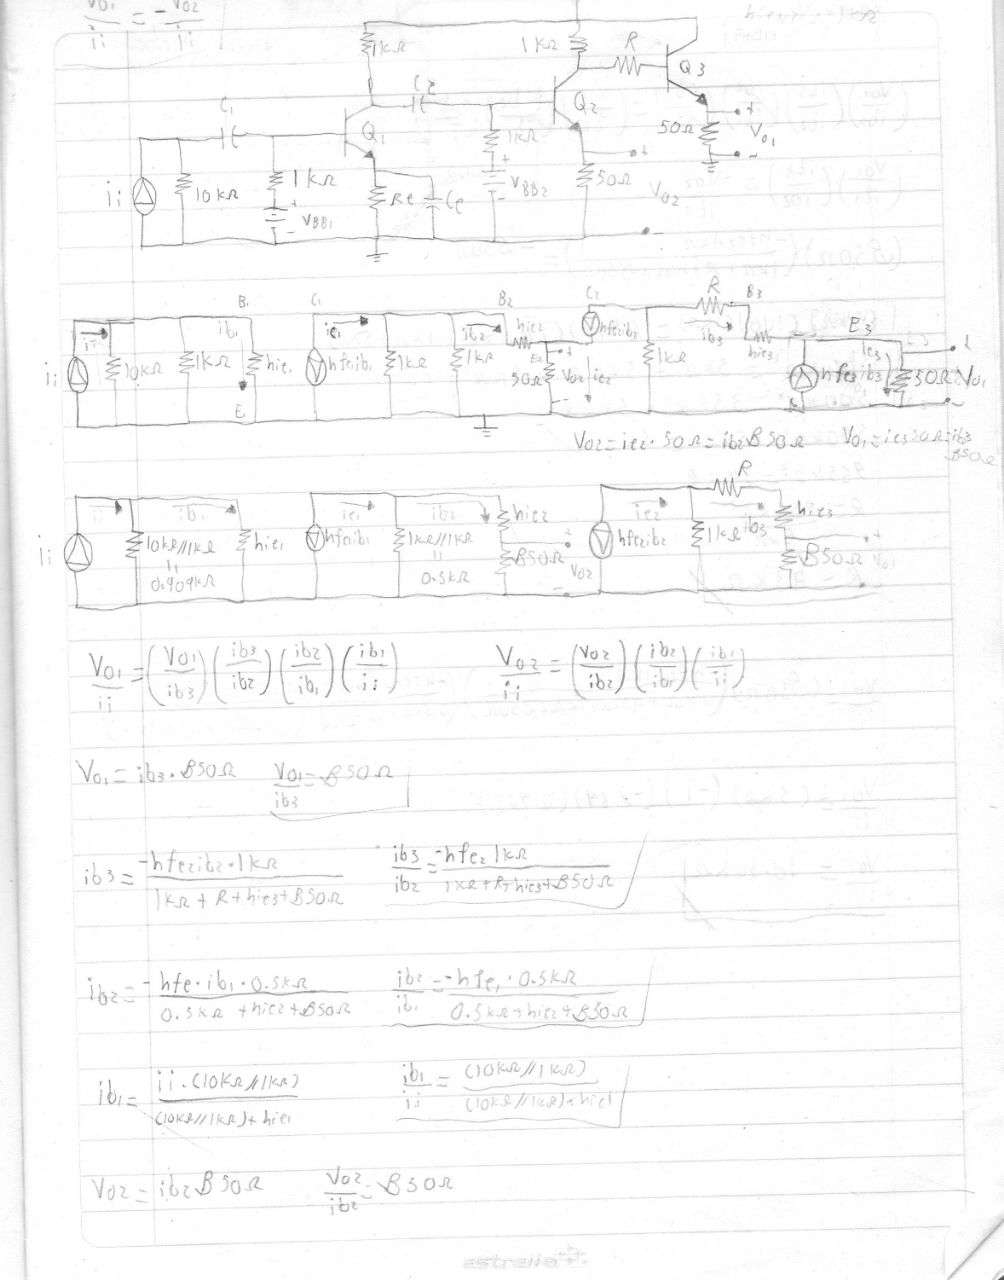 Vo1/ii = -Vo2/ii
hie1,2,3 = 1kΩ
1kΩ
1kΩ
R
Q3
C2
Q2
C1
Q1
1kΩ
50Ω
+
Vo1
-
ii
10kΩ
1kΩ
+
VBB1
-
Re
Ce
+
VBB2
-
50Ω
+
Vo2
-
B1 C1 B2 C2 R B3 E3
ii
ii
10kΩ
1kΩ
ib1
hie1
E
ic1
hfeib1
1kΩ
1kΩ
ib2
hie2
E2
50Ω
+
Vo2
-
ie2
hfeib2
1kΩ
ib3
hie3
hfe3ib3
ie3
50Ω
+
Vo1
-
Vo2 = ie2 · 50Ω = ib2 β 50Ω Vo1 = ie3 50Ω = ib3 β50Ω
ii
ii
10kΩ//1kΩ
=
0.909kΩ
ib1
hie1
ic1
hfeib1
1kΩ//1kΩ
=
0.5kΩ
ib2
hie2
β50Ω
+
Vo2
-
hfe2ib2
ic2
1kΩ
R
ib3
hie3
β50Ω
+
Vo1
-
Vo1/ii = (Vo1/ib3)(ib3/ib2)(ib2/ib1)(ib1/ii) Vo2/ii = (Vo2/ib2)(ib2/ib1)(ib1/ii)
Vo1 = ib3 · β50Ω Vo1/ib3 = β50Ω
ib3 = -hfe2ib2 · 1kΩ / 1kΩ + R + hie3 + β50Ω ib3/ib2 = -hfe2 1kΩ / 1kΩ + R + hie3 + β50Ω
ib2 = -hfe · ib1 · 0.5kΩ / 0.5kΩ + hie2 + β50Ω ib2/ib1 = -hfe1 · 0.5kΩ / 0.5kΩ + hie2 + β50Ω
ib1 = ii · (10kΩ//1kΩ) / (10kΩ//1kΩ) + hie1 ib1/ii = (10kΩ//1kΩ) / (10kΩ//1kΩ) + hie1
Vo2 = ib2 β 50Ω Vo2/ib2 = β50Ω